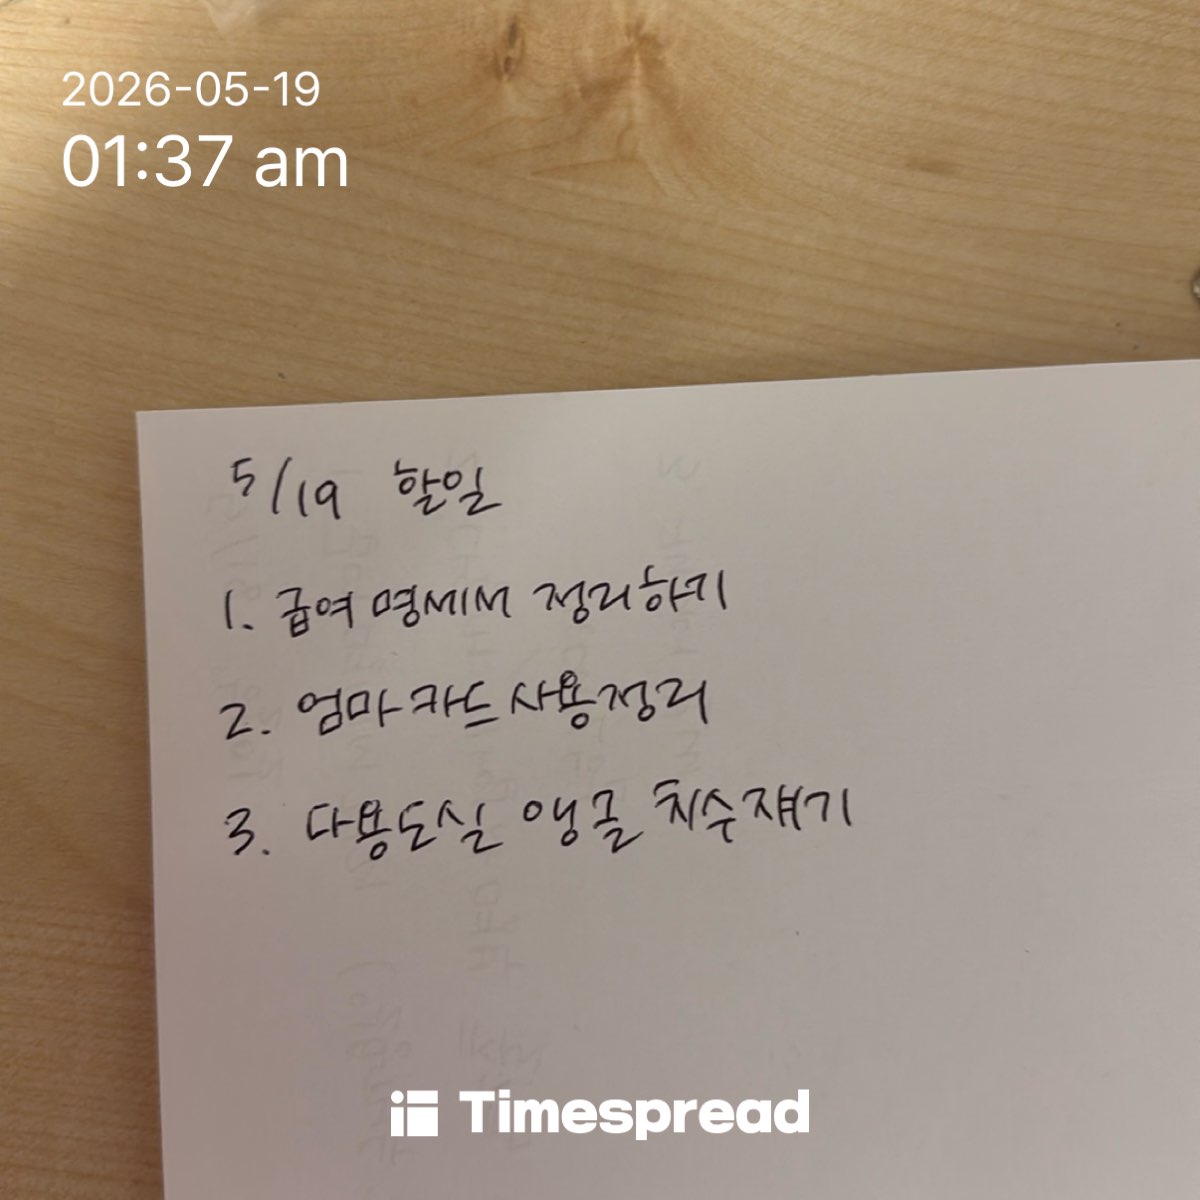 2026-05-19
01:37 am
5/19 할일
1. 급여 명세서 정리하기
2. 엄마카드 사용정리
3. 다용도실 앵글 치수재기
Timespread